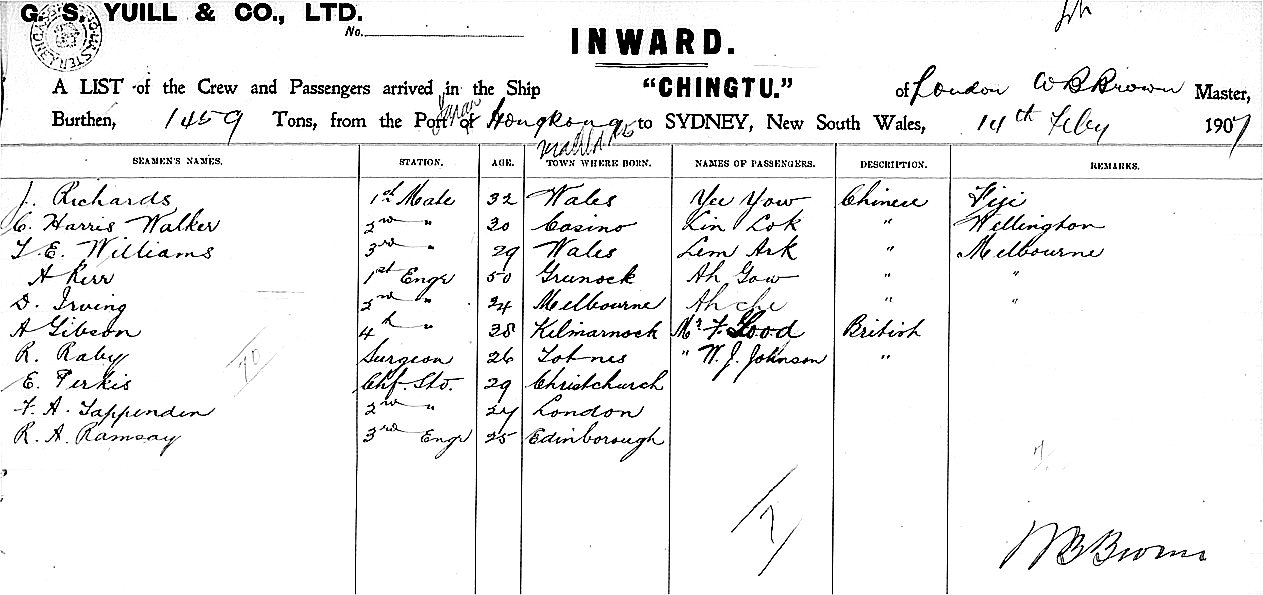 G. S. YUILL & CO., LTD.
No.
INWARD.
A LIST of the Crew and Passengers arrived in the Ship "CHINGTU." of London W B Brown Master,
Burthen, 1459 Tons, from the Port of Japan Hongkong Manila &c to SYDNEY, New South Wales, 14th Feby 1907
SEAMEN'S NAMES. STATION. AGE. TOWN WHERE BORN. NAMES OF PASSENGERS. DESCRIPTION. REMARKS.
J. Richards 1st Mate 32 Wales Yee Yow Chinese Fiji
C. Harris Walker 2nd " 30 Casino Lin Lok " Wellington
T. E. Williams 3rd " 29 Wales Lem Ark " Melbourne
A Kerr 1st Engr 50 Grunock Ah Gow " "
D. Irving 2nd " 24 Melbourne Ah che " "
A Gibson 4th " 28 Kilmarnock Mr F. Good British
R. Raby Surgeon 26 Totnes " W. J. Johnson "
E. Perkis Chf. Sto. 29 Christchurch
F. A. Tappenden 2nd " 27 London
R. A. Ramsay 3rd Engr 25 Edinborough
10
7
W B Brown